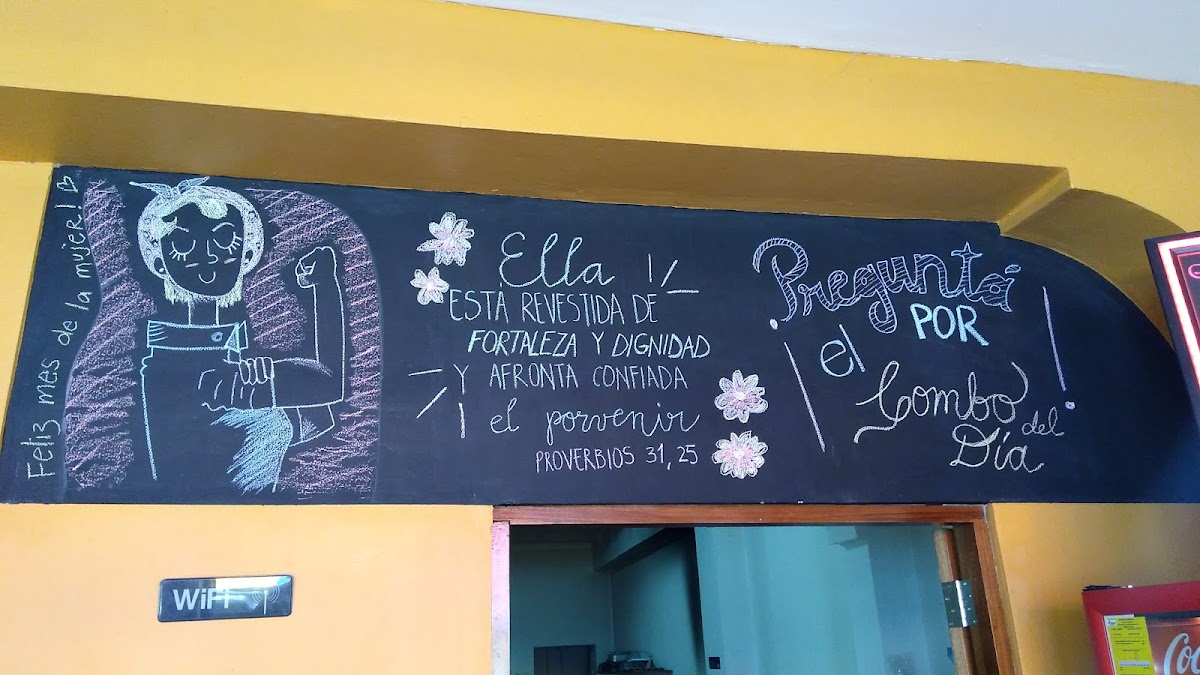 Feliz mes de la mujer!
Ella
ESTÁ REVESTIDA DE
FORTALEZA Y DIGNIDAD
Y AFRONTA CONFIADA
el porvenir
PROVERBIOS 31, 25
Preguntá
POR
el
Combo
del
Día
WiFi